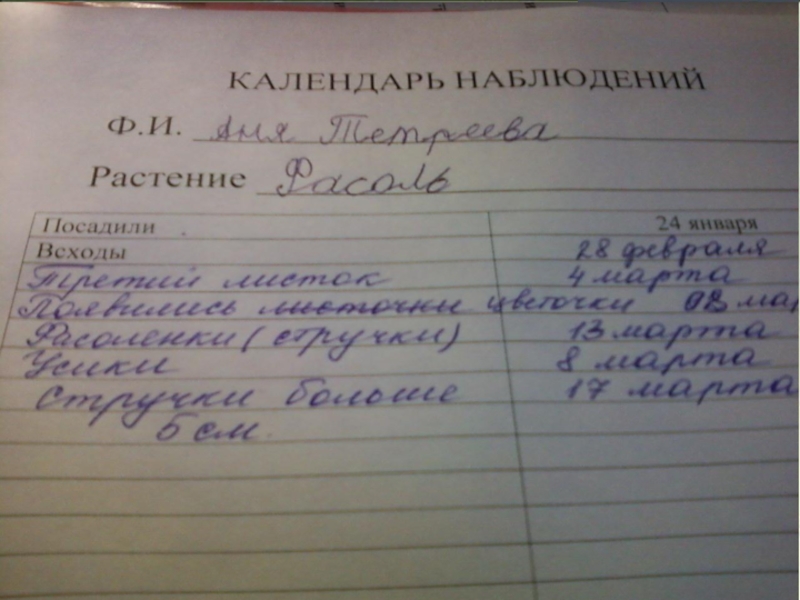 КАЛЕНДАРЬ НАБЛЮДЕНИЙ
Ф.И. Аня Тетреева
Растение Фасоль
Посадили 24 января
Всходы 28 февраля
Третий листок 4 марта
Появились листочки цветочки мар
Фасоленки (стручки) 13 марта
Усики 8 марта
Стручки больше 17 марта
5 см.